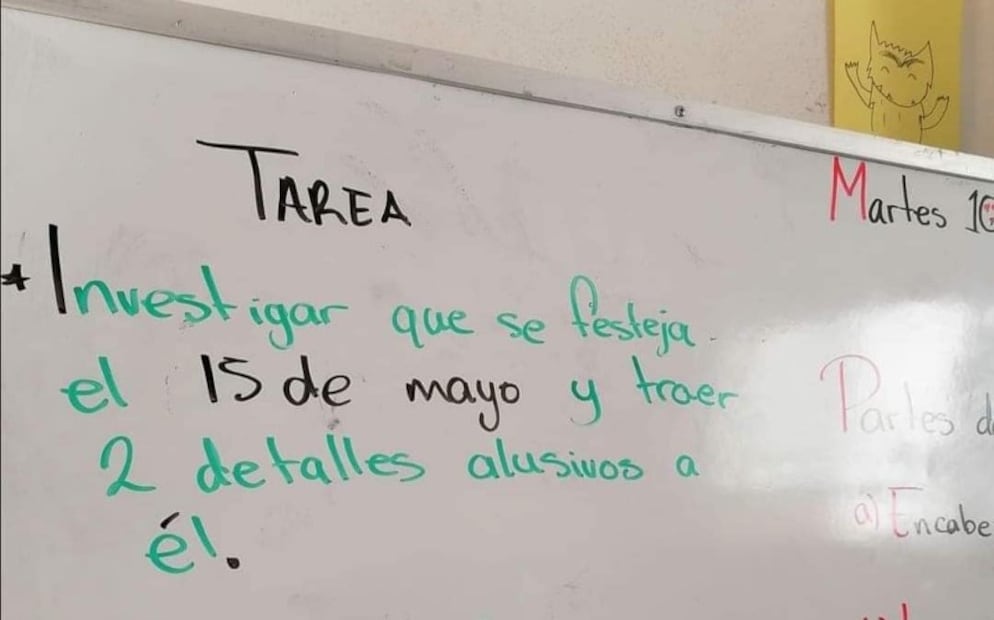 TAREA
* Investigar que se festeja
el 15 de mayo y traer
2 detalles alusivos a
él.
Martes
Partes
a) Encabe